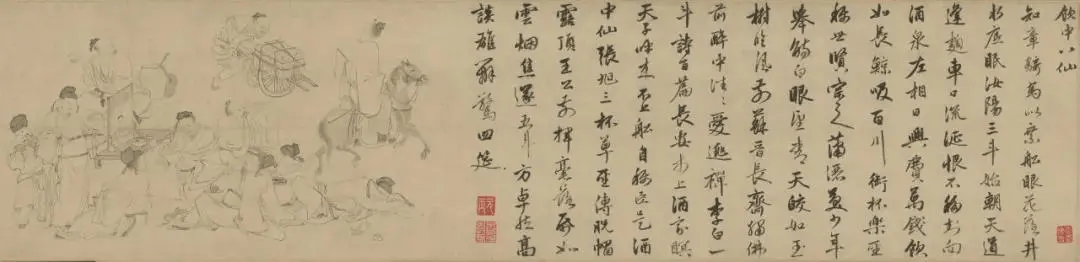 飲中八仙
知章騎馬似乘船眼花落井
水底眠汝陽三斗始朝天道
逢麴車口流涎恨不移封向
酒泉左相日興費萬錢飲
如長鯨吸百川銜杯樂聖
稱世賢宗之瀟洒美少年
舉觴白眼望青天皎如玉
樹臨風前蘇晉長齋繡佛
前醉中往〻愛逃禪李白一
斗詩百篇長安市上酒家眠
天子呼來不上船自稱臣是酒
中仙張旭三杯草聖傳脫帽
露頂王公前揮毫落紙如
雲烟焦遂五斗方卓然高
談雄辯驚四筵